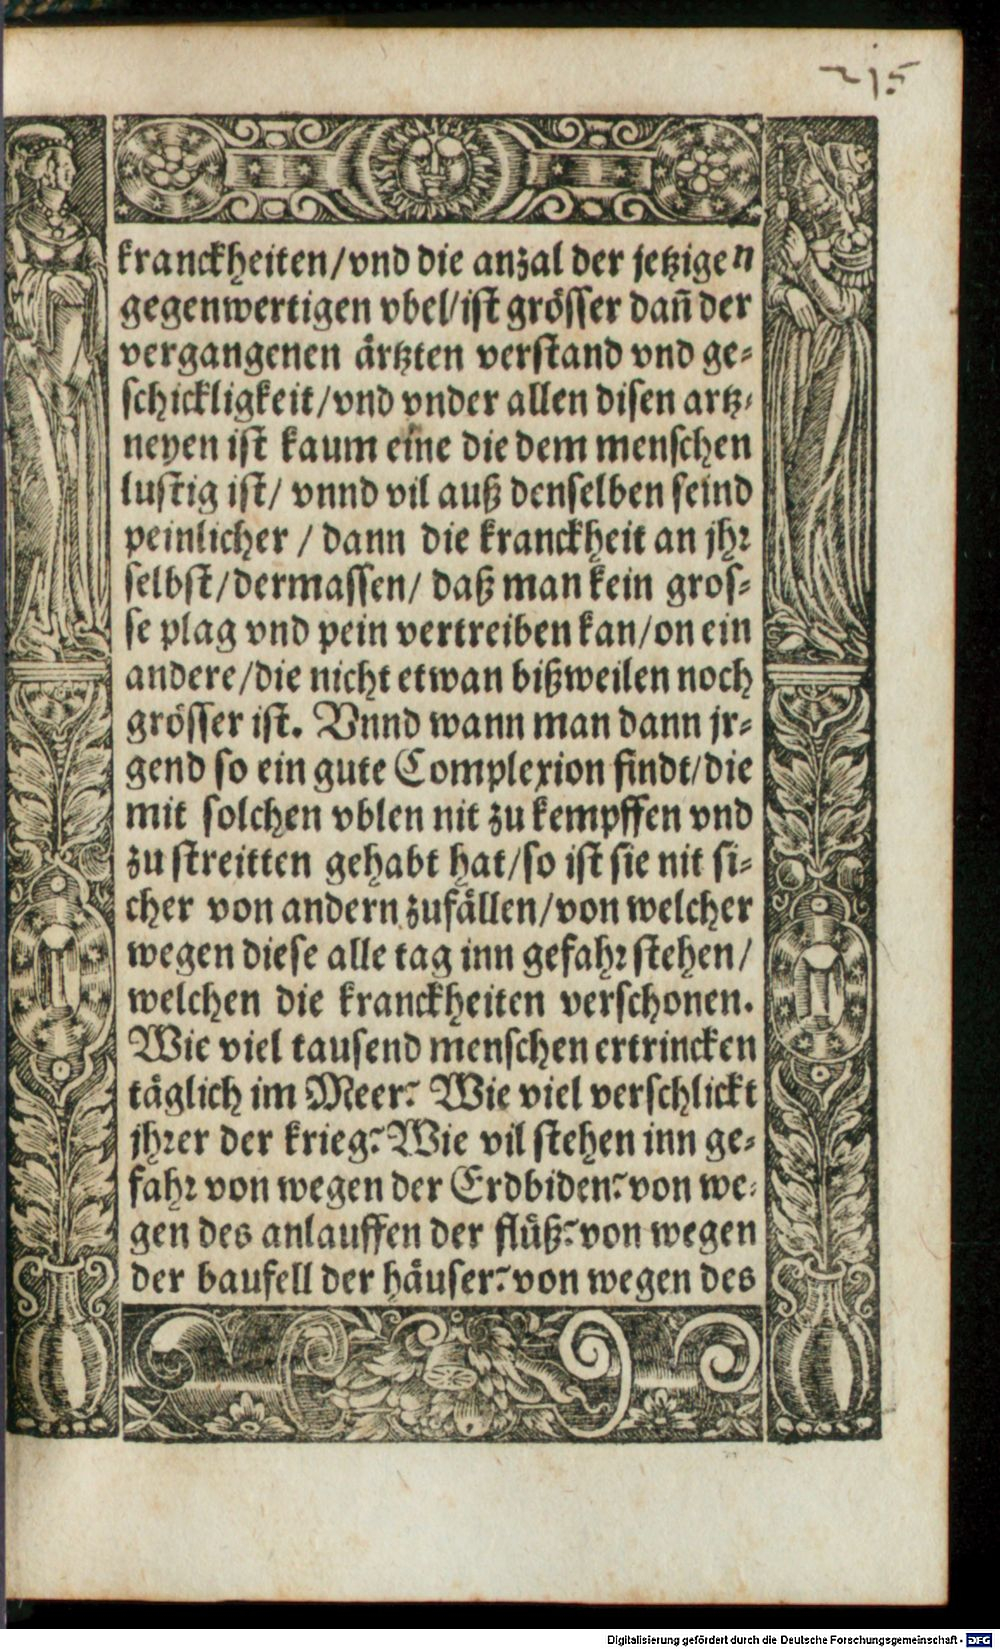 215
kranckheiten/vnd die anzal der jetzigen
gegenwertigen vbel/ist grösser dañ der
vergangenen ärtzten verstand vnd ge-
schickligkeit/vnd vnder allen disen artz-
neyen ist kaum eine die dem menschen
lustig ist/ vnnd vil auß denselben seind
peinlicher / dann die kranckheit an jhr
selbst/dermassen/ daß man kein gros-
se plag vnd pein vertreiben kan/on ein
andere/die nicht etwan bißweilen noch
grösser ist. Vnnd wann man dann jr-
gend so ein gute Complexion findt/die
mit solchen vblen nit zu kempffen vnd
zu streitten gehabt hat/so ist sie nit si-
cher von andern zufällen/von welcher
wegen diese alle tag inn gefahr stehen/
welchen die kranckheiten verschonen.
Wie viel tausend menschen ertrincken
täglich im Meer? Wie viel verschlickt
jhrer der krieg? Wie vil stehen inn ge-
fahr von wegen der Erdbiden? von we-
gen des anlauffen der flüß? von wegen
der baufell der häuser? von wegen des
Digitalisierung gefördert durch die Deutsche Forschungsgemeinschaft - DFG